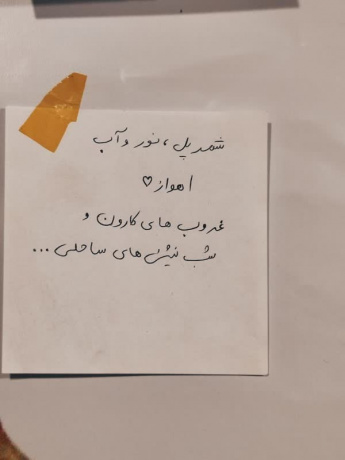 شهر پل، نور و آب
اهواز ♡
غروب های کارون و
شب نشینی های ساحلی ...